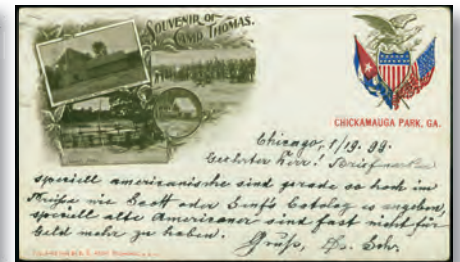 SOUVENIR OF
CAMP THOMAS.
CHICKAMAUGA PARK, GA.
Chicago, 1/19. 99.
Geehrter Herr! Briefmarken
speciell americanische sind gerade so hoch im
Preise wie Scott oder Senf's Catalog es angeben,
speciell alte Americaner sind fast nicht für
Geld mehr zu haben.
Gruß, Dr. Sch.